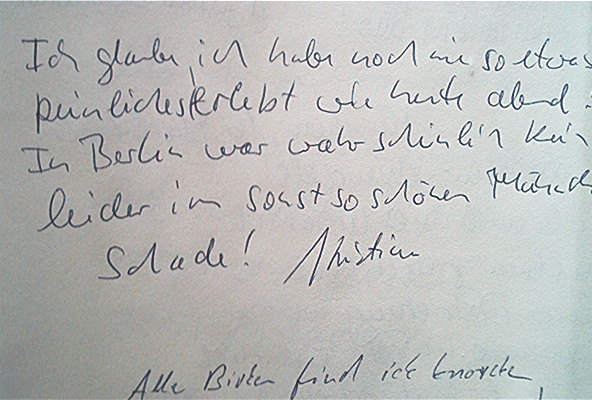 Ich glaube, ich habe noch nie so etwas
peinliches Erlebt wie heute abend :
In Berlin war wahrscheinlich kein
leider im sonst so schönen
Schade! Christian
Alle Birken find ick knorcke,